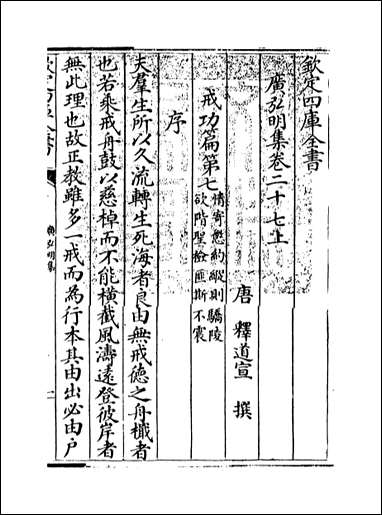 欽定四庫全書
廣弘明集卷二十七上
唐 釋道宣 撰
戒功篇第七 情寄懲約縱則驕陵
欲階聖檢匪斯不震
序
夫羣生所以久流轉生死海者良由無戒德之舟檝者
也若乘戒舟鼓以慈棹而不能橫截風濤遠登彼岸者
無此理也故正教雖多一戒而為行本其由出必由戶
欽定四庫全書
廣弘明集